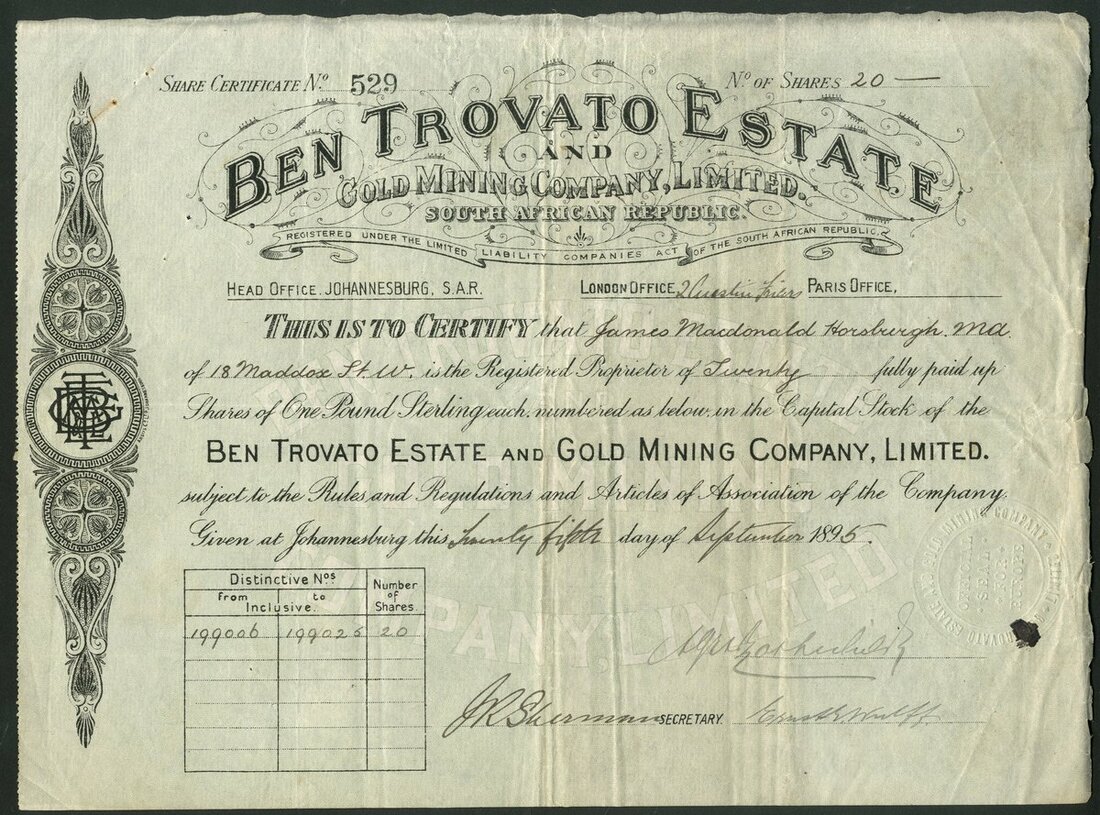 SHARE CERTIFICATE No. 529 No. OF SHARES 20
BEN TROVATO ESTATE
AND
GOLD MINING COMPANY, LIMITED.
SOUTH AFRICAN REPUBLIC.
REGISTERED UNDER THE LIMITED LIABILITY COMPANIES ACT OF THE SOUTH AFRICAN REPUBLIC.
HEAD OFFICE, JOHANNESBURG, S.A.R. LONDON OFFICE 2 Austin Friars PARIS OFFICE,
THIS IS TO CERTIFY that James Macdonald Horsburgh. Md.
of 18 Maddox St. W. is the Registered Proprietor of Twenty fully paid up
Shares of One Pound Sterling each, numbered as below, in the Capital Stock of the
BEN TROVATO ESTATE AND GOLD MINING COMPANY, LIMITED.
subject to the Rules and Regulations and Articles of Association of the Company.
Given at Johannesburg this twenty fifth day of September 1895.
Distinctive Nos. Number of Shares.
from to
Inclusive.
199006 199025 20
J R Sherman SECRETARY.